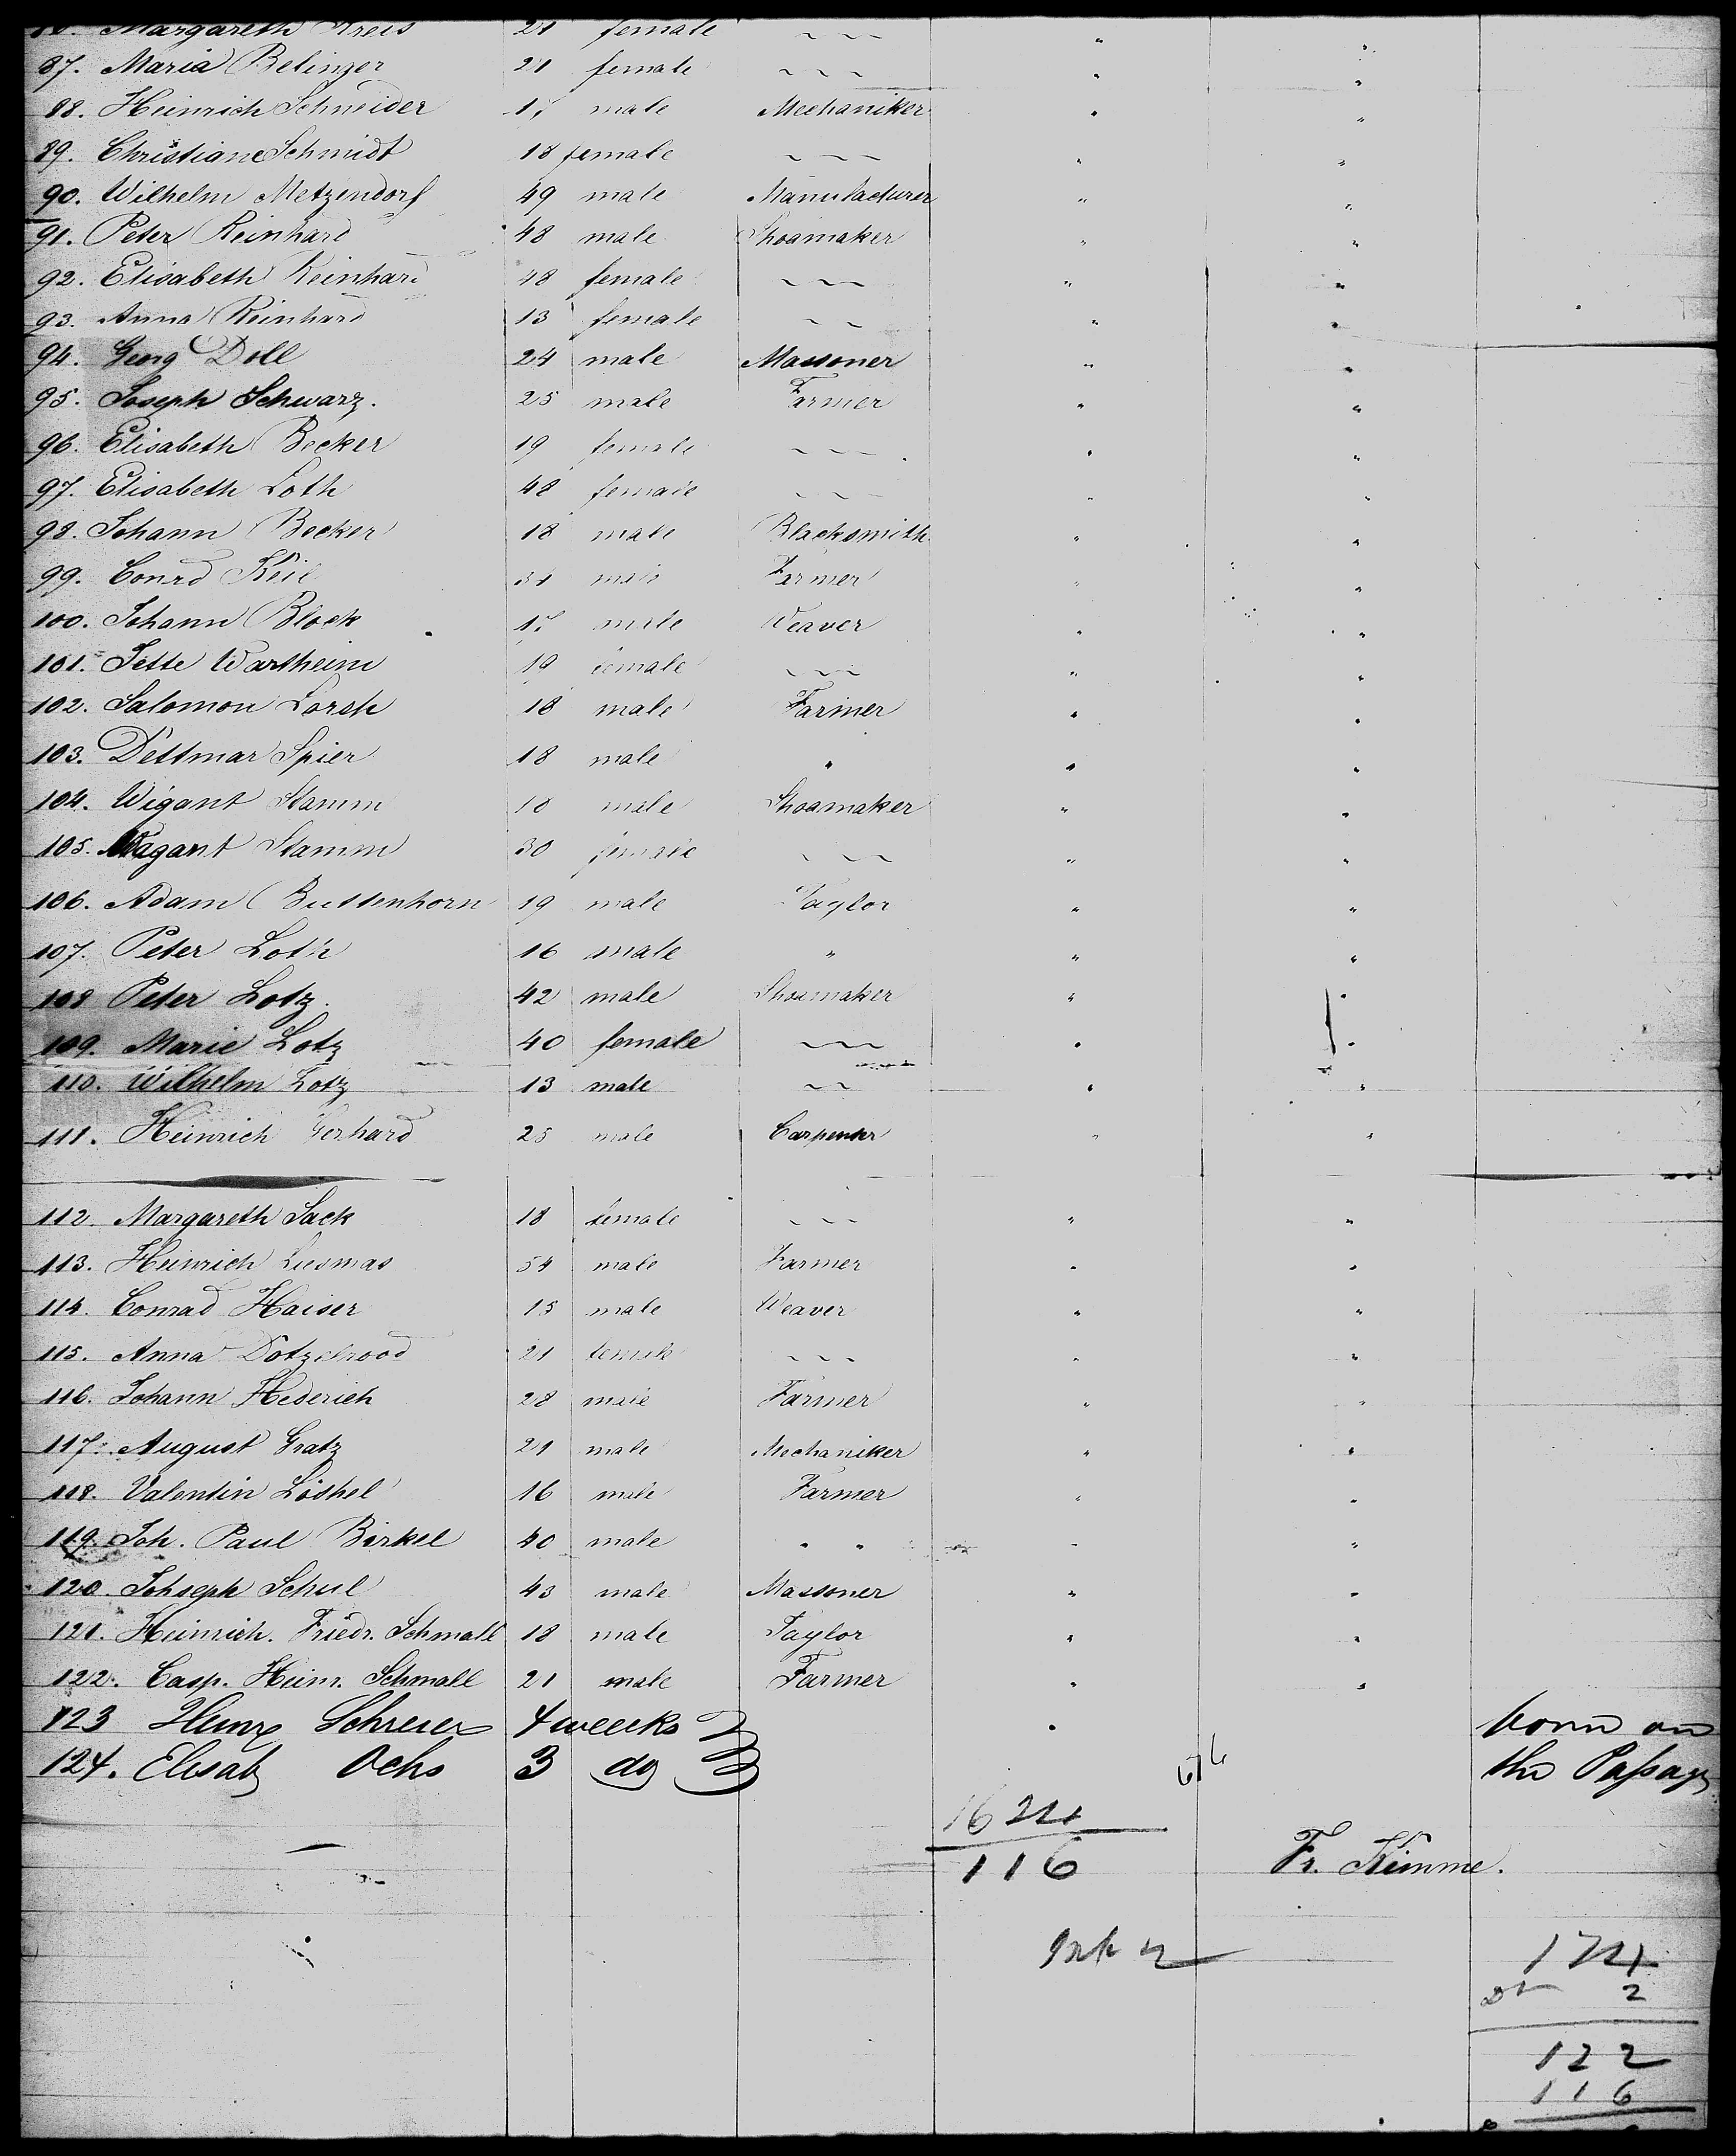 Margareth Kreis 21 female ~ ~ ~ " "
87. Maria Belinger 21 female ~ ~ ~ " "
88. Heinrich Schneider male Mechaniker " "
89. Christiane Schmidt 18 female ~ ~ ~ " "
90. Wilhelm Metzendorf 49 male Manufacturer " "
91. Peter Reinhard 48 male Shoamaker " "
92. Elisabeth Reinhard 48 female ~ ~ ~ " "
93. Anna Reinhard 13 female ~ ~ " "
94. Georg Doll 24 male Massoner " "
95. Joseph Schwarz. 25 male Farmer " "
96. Elisabeth Becker 19 female ~ ~ ~ " "
97. Elisabeth Loth 48 female ~ ~ " "
98. Johann Becker 18 male Blacksmith " "
99. Conrd Keil male Farmer " "
100. Johann Block male Weaver " "
101. Jette Wartheim 19 female ~ ~ ~ " "
102. Salomon Lorsh 18 male Farmer " "
103. Dettmar Spier 18 male " " "
104. Wigant Stamm 18 male Shoamaker " "
105. Wagant Stamm 30 female ~ ~ ~ " "
106. Adam Buttenhorn 19 male Taylor " "
107. Peter Loth 16 male " " "
108 Peter Lotz. 42 male Shoamaker " "
109. Marie Lotz 40 female ~ ~ ~ " "
110. Wilhelm Lotz 13 male ~ ~ " "
111. Heinrich Gerhard 25 male Carpenter " "
112. Margareth Sack 18 female ~ ~ ~ " "
113. Heinrich Luesmas 54 male Farmer " "
114. Conrad Haiser 15 male Weaver " "
115. Anna Dotzelrood 21 female ~ ~ ~ " "
116. Johann Hederich 28 male Farmer " "
117. August Gratz 21 male Mechaniker " "
118. Valentin Löshel 16 male Farmer " "
119. Joh. Paul Birkel 40 male " " " "
120. Johseph Schul 43 male Massoner " "
121. Heinrich. Friedr. Schmall 18 male Taylor " "
122. Casp. Heinr. Schmall 21 male Farmer " "
123 Schreier 4 weeks " born on
124. Elisab Ochs 3 do the Passage
116 Fr. Kimme.
124
2
122
116